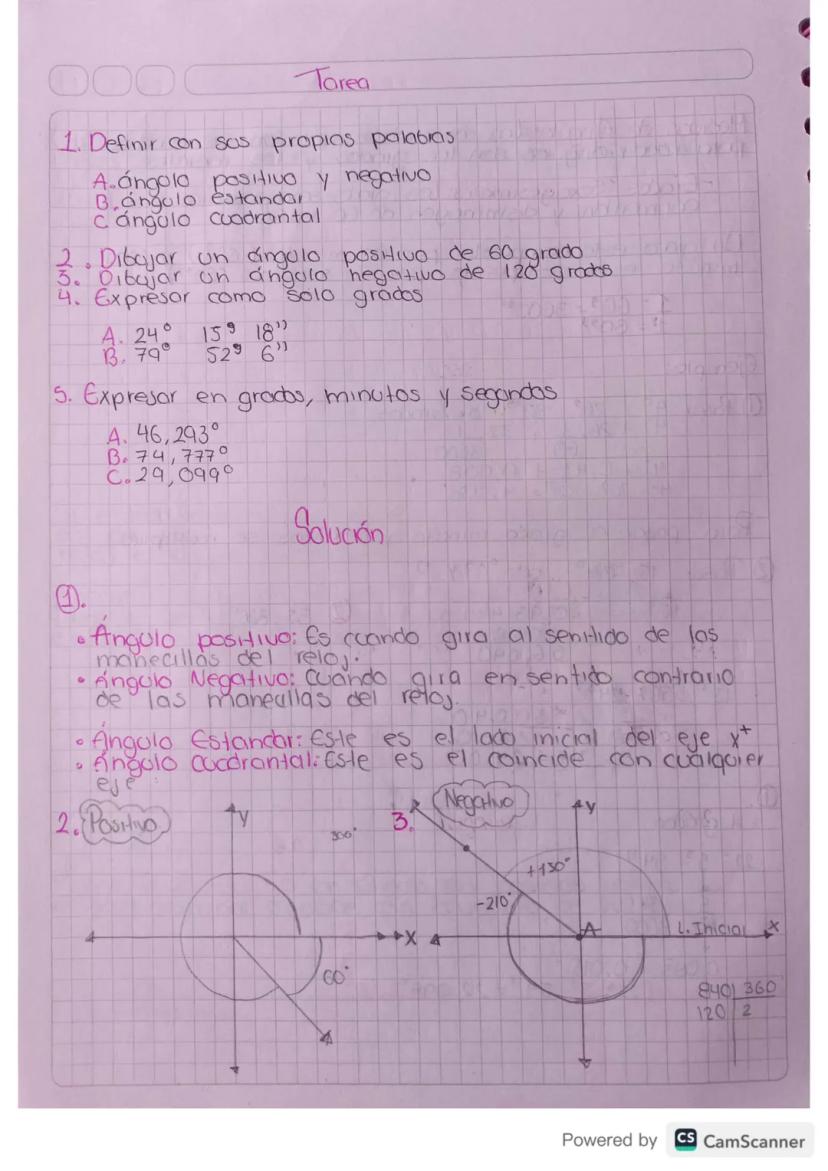 Tarea
1. Definir con sus propias palabras
A. ángulo positivo y negativo
B. ángulo estandar
C ángulo cuadrantal
2. Dibujar un ángulo positivo de 60 grado
3. Dibujar un ángulo negativo de 120 grados
4. Expresar como solo grados
A. 24° 15' 18''
B. 79° 52' 6''
5. Expresar en grados, minutos y segundos
A. 46,293°
B. 74,777°
C. 29,099°
Solución
1.
• Ángulo positivo: Es cuando gira al sentido de las
manecillas del reloj.
• Ángulo Negativo: Cuando gira en sentido contrario
de las manecillas del reloj.
• Ángulo Estandar: Este es el lado inicial del eje x+
• Ángulo cuadrantal: Este es el coincide con cualquier
eje
2. Positivo
y
300°
X
60°
3. Negativo
y
+150°
-210°
A
L. Inicial X
840 360
120 2
Powered by CS CamScanner